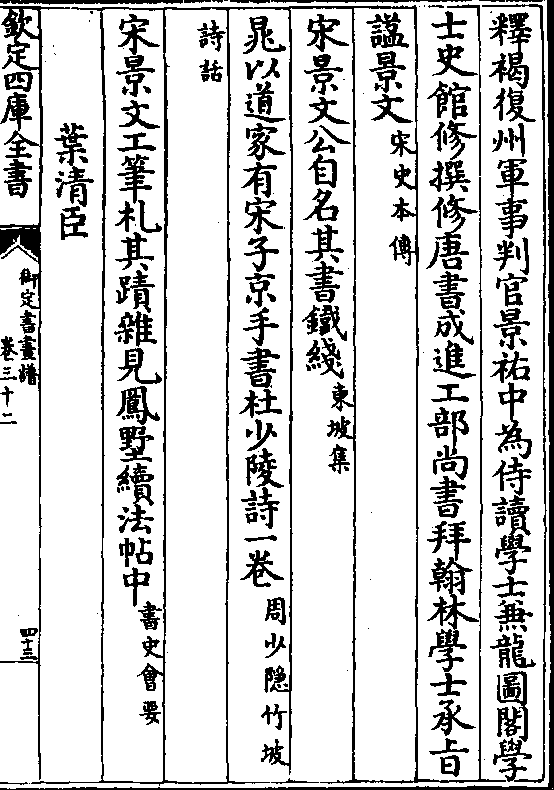 釋褐復州軍事判官景祐中為侍讀學士兼龍圖閣學
士史館修撰修唐書成進工部尚書拜翰林學士承旨
諡景文宋史本傳
宋景文公自名其書鐵綫東坡集
晁以道家有宋子京手書杜少陵詩一卷周少隱竹坡
詩話
宋景文工筆札其蹟雜見鳳墅續法帖中書史會要
葉清臣
欽定四庫全書
御定書畫譜
卷三十二
四十三